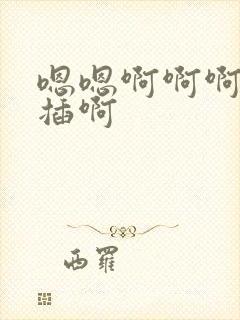 嗯嗯啊啊啊
插啊
西罗